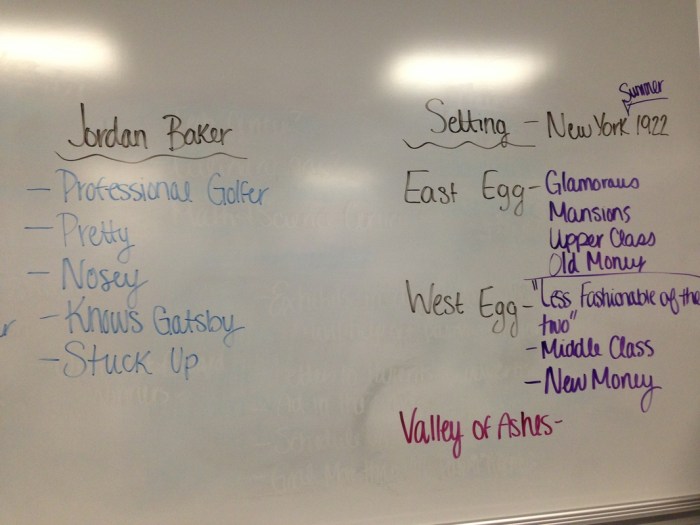 Jordan Baker
- Professional Golfer
- Pretty
- Nosey
- Knows Gatsby
- Stuck Up
Summer
Setting - New York 1922
East Egg - Glamoraus
Mansions
Upper Class
Old Money
West Egg - "Less Fashionable of the
two"
- Middle Class
- New Money
Valley of Ashes -